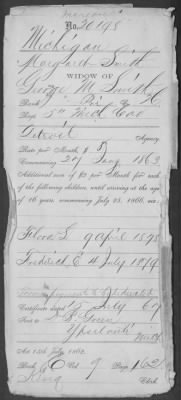 No. 20195
Michigan
Margaret Smith
WIDOW OF
George M. Smith
Rank Co.
Regt. 5th Mich Cav
Detroit
Agency.
Rate per Month, $ 8
Commencing 27 1863
Additional sum of $2 per Month for each
of the following children, until arriving at the
age of 16 years, commencing July 25, 1866, viz:
Flora L. 9 April 1878
Frederick E. 4 July 1879
Certificate dated 15 July 67
Sent to
Ypsilanti
Mich
Act 14th July, 1862.
Book Vol. 9 Page 162
Clerk.